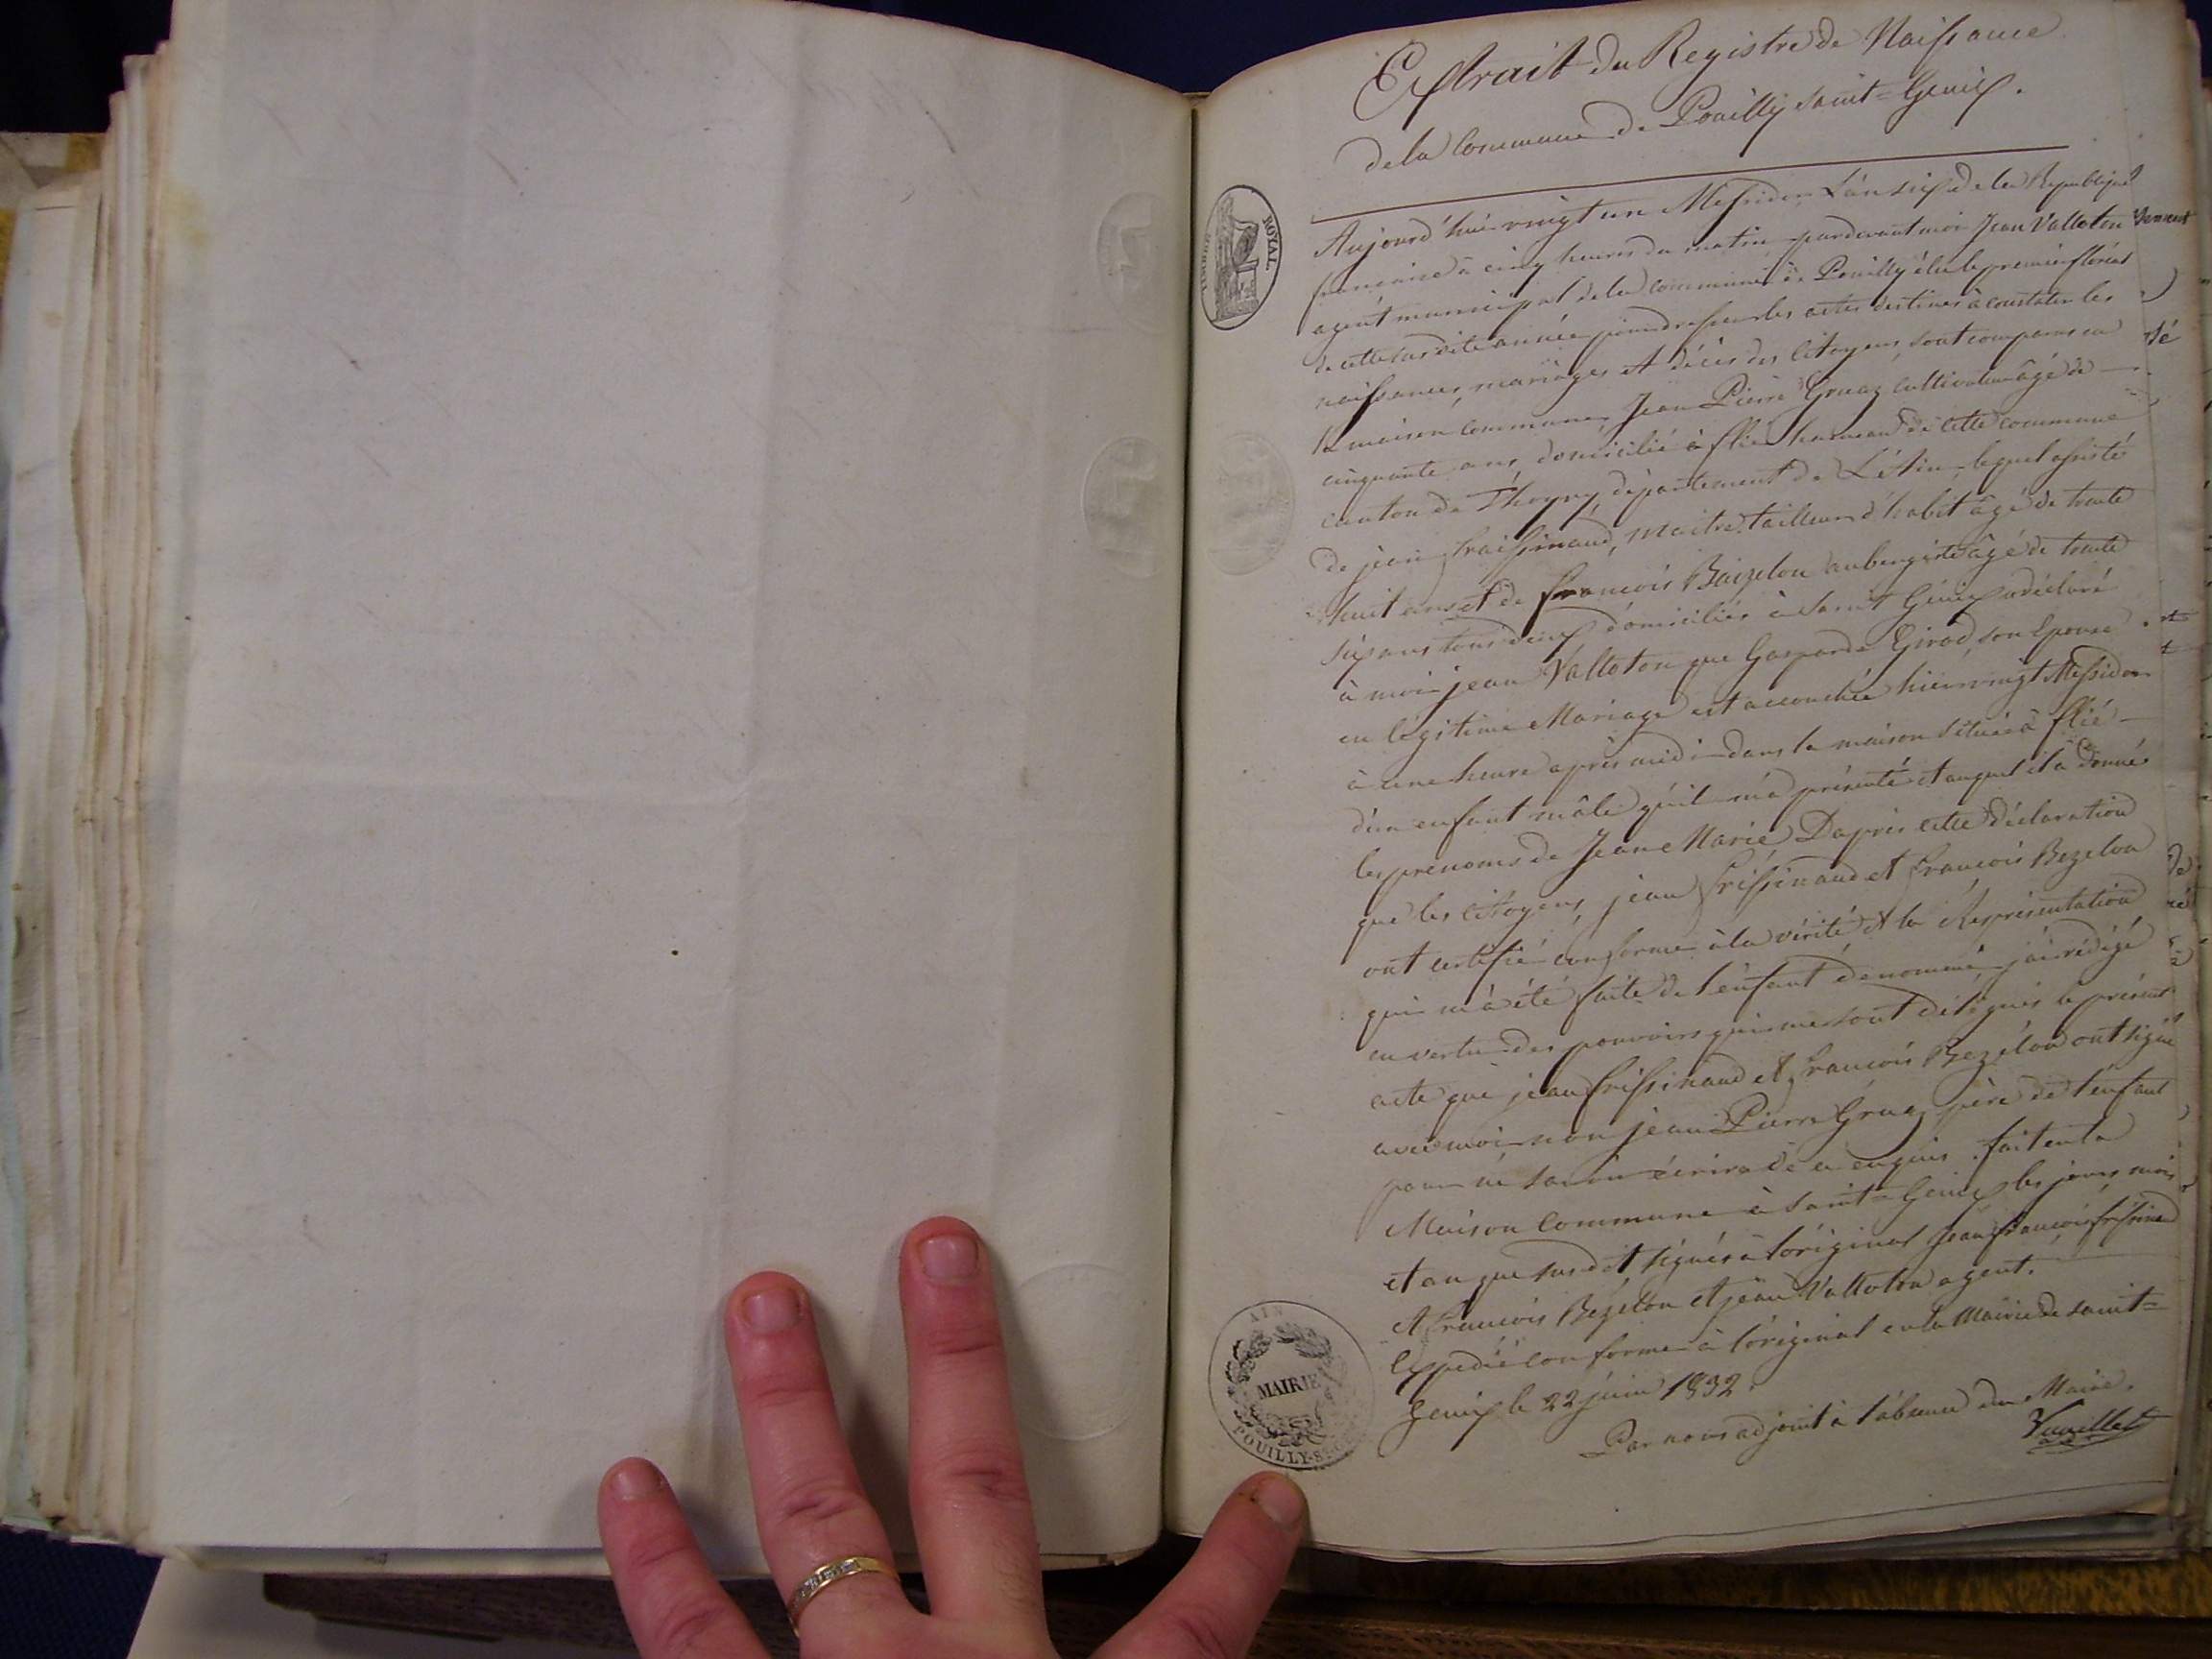 Extrait du Registre de Naissance
de la Commune de Pouilly Saint=Genix.
TIMBRE ROYAL
Aujourd'hui vingt un Messidor L'an six de la Republique
francaise à cinq heures du matin pardevant moi Jean Valloton
agent municipal de la commune de Pouilly élu le premier floréal
de cette susdite année pour dresser les actes destinés à constater les
naissances, mariages et décès des Citoyens, sont comparus en
la maison commune, Jean Pierre Gruaz cultivateur âgé de
cinquante ans, domicilié à flié hameau de cette commune
canton de Thoyry, département de L'Ain lequel assisté
de jean fraissinaud, maitre tailleur d'habit âgé de trente
huit ans et de francois Baizelon aubergiste âgé de trente
six ans tous deux domiciliés à Saint Genix a déclaré
à moi jean Valloton que Gasparde Girod, son Epouse
en légitime Mariage est accouchée hier vingt Messidor
à une heure après midi dans la maison située à flié
d'un enfant mâle qu'il m'a présenté et auquel il a donné
les prenoms de Jean Marie Daprès cette déclaration
que les citoyens jean frissinaud et francois Bezelon
ont certifié conforme à la vérité & la Représentation
qui m'a été faite de l'enfant denommé j'ai rédigé
en vertu des pouvoirs qui me sont délégués le présent
acte que jean frissinaud et francois Bezelon ont signé
avec moi non jean Pierre Gruaz père de l'enfant
pour ne savoir écrire de ce enquis. fait en la
Maison Commune à Saint=Genix les jours mois
et an que susdit signés à l'original Jean francois frissinaud
& francois Bezelon et jean Valloton agent.
Expedié conforme à l'original en la Mairie de Saint=
Genix le 22 juin 1832.
Par nous adjoint à l'absence du Maire.
Vuaillet
AIN
MAIRIE
POUILLY-S